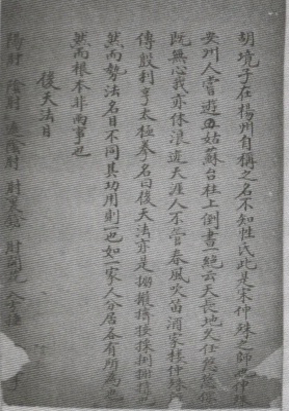 胡境子在揚州自稱之名不知性氏此是宋仲殊之師也仲殊
安州人嘗遊姑蘇台柱上倒書一絕云天長地久任悠悠你
既無心我亦休浪迹天涯人不管春風吹笛酒家樓仲殊
傳殷利亨太極拳名曰後天法亦是掤攦擠按採挒
然而勢法名目不同其功用則一也如一家人分居各有所為也
然而根本非兩事也
後天法目
陽肘 陰肘 遮陰肘 肘裏鎗 肘開花